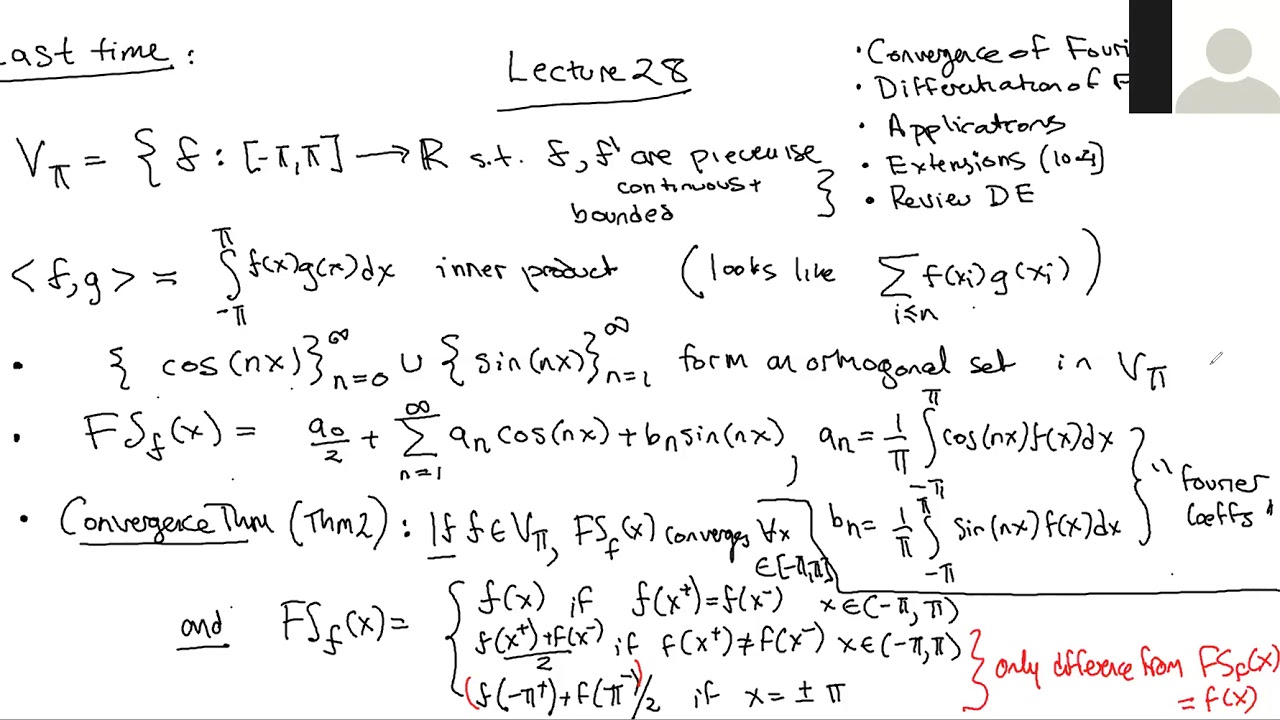 Last time :
Lecture 28
• Convergence of Fouri
• Differentiation of F
• Applications
• Extensions (10.4)
• Review DE
V_π = { f : [-π,π] → ℝ s.t. f, f' are piecewise
continuous +
bounded }
<f,g> = ∫_{-π}^{π} f(x)g(x)dx inner product (looks like ∑_{i≤n} f(xi)g(xi))
• { cos(nx)}_{n=0}^{∞} ∪ { sin(nx)}_{n=1}^{∞} form an orthogonal set in V_π
• FS_f(x) = a_0/2 + ∑_{n=1}^{∞} a_n cos(nx) + b_n sin(nx) , a_n = 1/π ∫_{-π}^{π} cos(nx) f(x)dx
b_n = 1/π ∫_{-π}^{π} sin(nx) f(x)dx } "Fourier
Coeffs"
• Convergence Thm (Thm 2) : If f ∈ V_π, FS_f(x) converges ∀x
∈ [-π,π]
and FS_f(x) = { f(x) if f(x⁺) = f(x⁻) x ∈ (-π, π)
f(x⁺) + f(x⁻)/2 if f(x⁺) ≠ f(x⁻) x ∈ (-π,π)
(f(-π⁺) + f(π⁻))/2 if x = ± π
} only difference from FS_f(x)
= f(x)